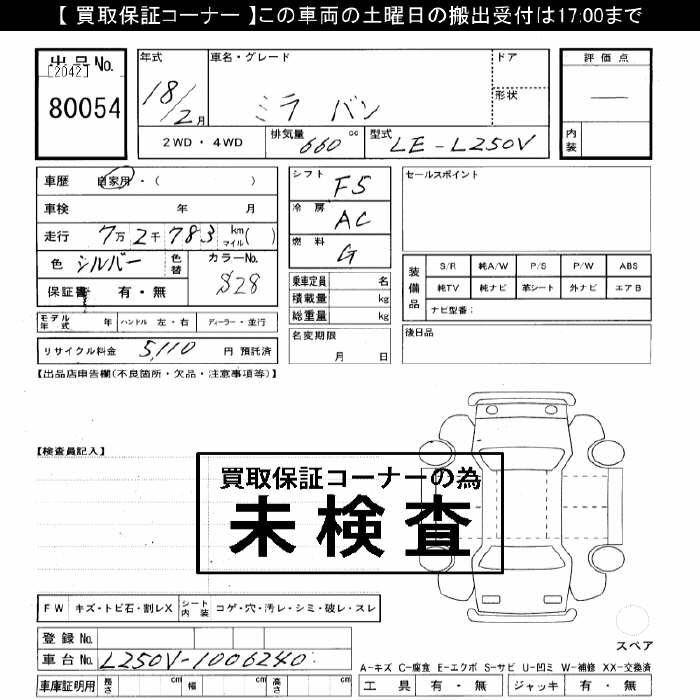 【 買取保証コーナー 】この車両の土曜日の搬出受付は17:00まで
出品No.
[2042]
80054
年式
18/2月
車名・グレード
ミラ バン
ドア
形状
評価点
―
内装
2WD・4WD
排気量 660 cc
型式 LE-L250V
車歴 自家用・( )
車検 年 月
走行 7万2千783 km マイル( )
色 シルバー 色替 カラーNo. S28
保証書 有・無
シフト F5
冷房 AC
燃料 G
乗車定員 名
積載量 kg
総重量 kg
セールスポイント
装備品
S/R 純A/W P/S P/W ABS
純TV 純ナビ 革シート 外ナビ エアB
ナビ型番:
モデル年式 年 ハンドル 左・右 ディーラー・並行
リサイクル料金 5,110 円 預託済
名変期限
月 日
後日品
【出品店申告欄(不良箇所・欠品・注意事項等)】
【検査員記入】
買取保証コーナーの為
未検査
FW キズ・トビ石・割レX シート内装 コゲ・穴・汚レ・シミ・破レ・スレ
登録No.
車台No. L250V-1006240
車庫証明用 長さ cm 幅 cm 高さ cm
スペア
A-キズ C-腐食 E-エクボ S-サビ U-凹ミ W-補修 XX-交換済
工具 有・無 ジャッキ 有・無